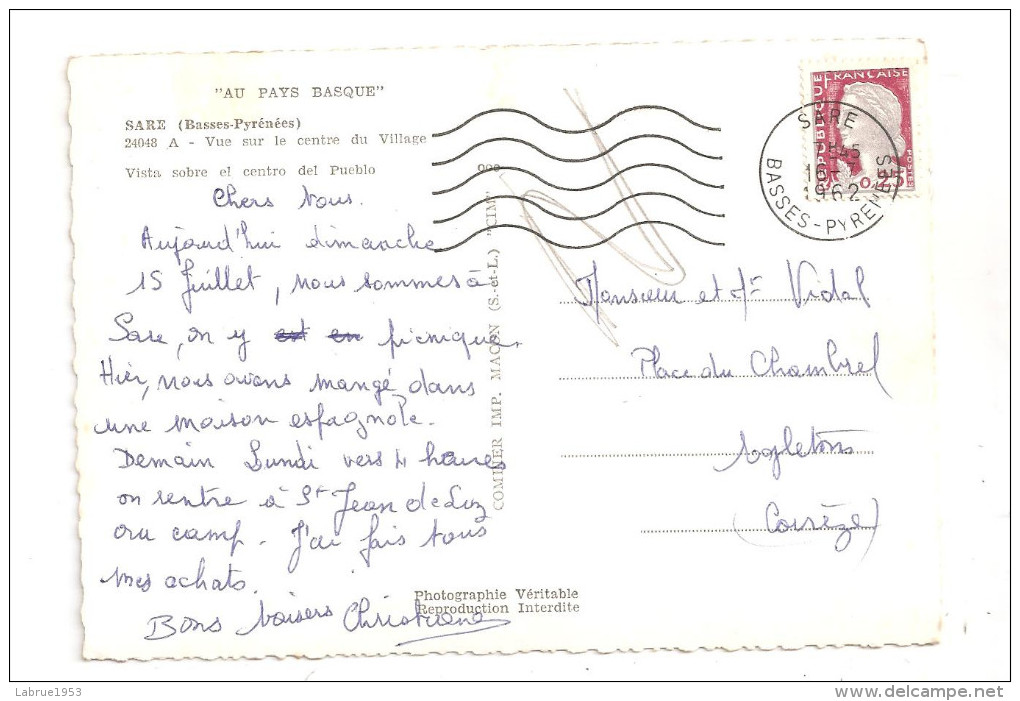 "AU PAYS BASQUE"
SARE (Basses-Pyrénées)
24048 A - Vue sur le centre du Village
Vista sobre el centro del Pueblo
Chers tous.
Aujourd'hui dimanche
15 Juillet, nous sommes à
Sare, on y est en picnique.
Hier, nous avons mangé dans
une maison espagnole.
Demain Lundi vers 4 heures
on rentre à St Jean de Luz
au camp. J'ai fais tous
mes achats.
Bons baisers Christiane
COMBIER IMP. MACON (S.-et-L.) "CIM"
Photographie Véritable
Reproduction Interdite
REPUBLIQUE FRANÇAISE
0,25
POSTES
SARE
16-7
1962
BASSES-PYRENEES
Monsieur et Me Vidal
Place du Chambrel
Egletons
(Corrèze)
Labrue1953
www.delcampe.net